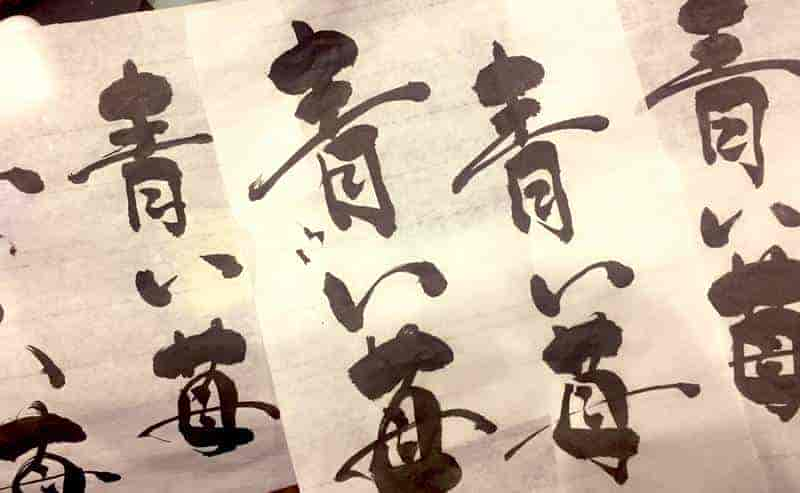 青い苺
青い苺
青い苺
青い苺
い苺